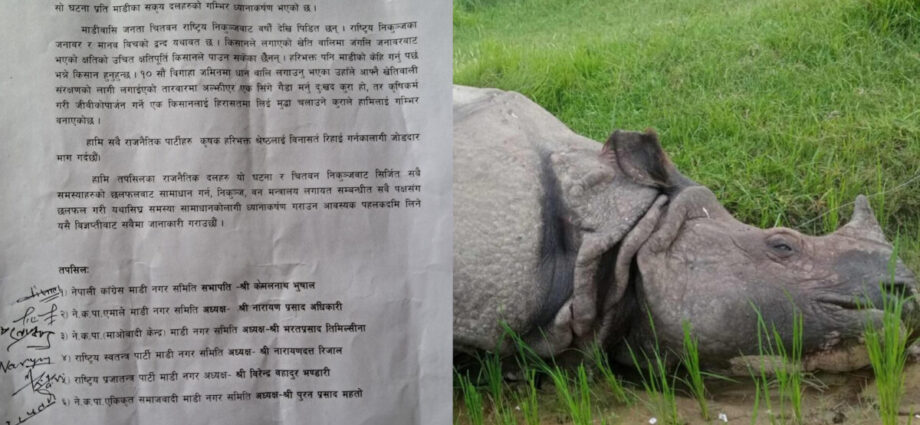 सो घटना प्रति माडीका सकृय दलहरुको गम्भिर ध्यानाकर्षण भएको छ ।
माडीबासि जनता चितवन राष्ट्रिय निकुञ्जबाट वर्षौं देखि पिडित छन् । राष्ट्रिय निकुञ्जका
जनावर र मानव विचको द्वन्द यथावत छ । किसानले लगाएको खेति वालिमा जंगलि जनावरबाट
भएको क्षतिको उचित क्षतिपुर्ति किसानले पाउन सकेका छैनन् । हरिभक्त पनि माडीको केहि गर्नु पर्छ
भन्ने किसान हुनुहुन्छ । १० सौं विगाहा जमिनमा धान वालि लगाउनु भएका उहाँले आफ्नै खेतिवाली
संरक्षणको लागी लगाईएको तारवारमा अल्झीएर एक सिंगे गैडा मर्नु दुःखद कुरा हो, तर कृषिकर्म
गरी जीवीकोपार्जन गर्ने एक किसानलाई हिरासतमा लिई मुद्धा चलाउने कुराले हामिलाई गम्भिर
बनाएकोछ ।
हामि सबै राजनैतिक पार्टीहरु कृषक हरिभक्त श्रेष्ठलाई विनासर्त रिहाई गर्नकालागी जोडदार
माग गर्दछौं।
हामि तपसिलका राजनैतिक दलहरु यो घटना र चितवन निकुञ्जबाट सिर्जित सबै
समस्याहरुको छलफलवाट सामाधान गर्न, निकुञ्ज, वन मन्त्रालय लगायत सम्बन्धीत सबै पक्षसंग
छलफल गरी यथासिघ्र समस्या सामाधानकोलागी ध्यानाकर्षण गराउन आवस्यक पहलकदमि लिने
यसै विज्ञप्तीबाट सबैमा जानाकारी गराउछौं ।
तपसिल:
१) नेपाली कांग्रेस माडी नगर समिति सभापति -श्री केमलनाथ भुषाल
२) ने.क.पा.एमाले माडी नगर समिति अध्यक्ष- श्री नारायण प्रसाद अधिकारी
३) ने.क.पा.(माओवादी केन्द्र) माडी नगर समिति अध्यक्ष-श्री भरतप्रसाद तिमिल्सीना
४) राष्ट्रिय स्वतन्त्र पार्टी माडी नगर समिति अध्यक्ष- श्री नारायणदत्त रिजाल
५) राष्ट्रिय प्रजातन्त्र पार्टी माडी नगर अध्यक्ष- श्री विरेन्द्र वहादुर भण्डारी
६) ने.क.पा एकिकृत समाजवादी माडी नगर समिति अध्यक्ष-श्री पुरन प्रसाद महतो